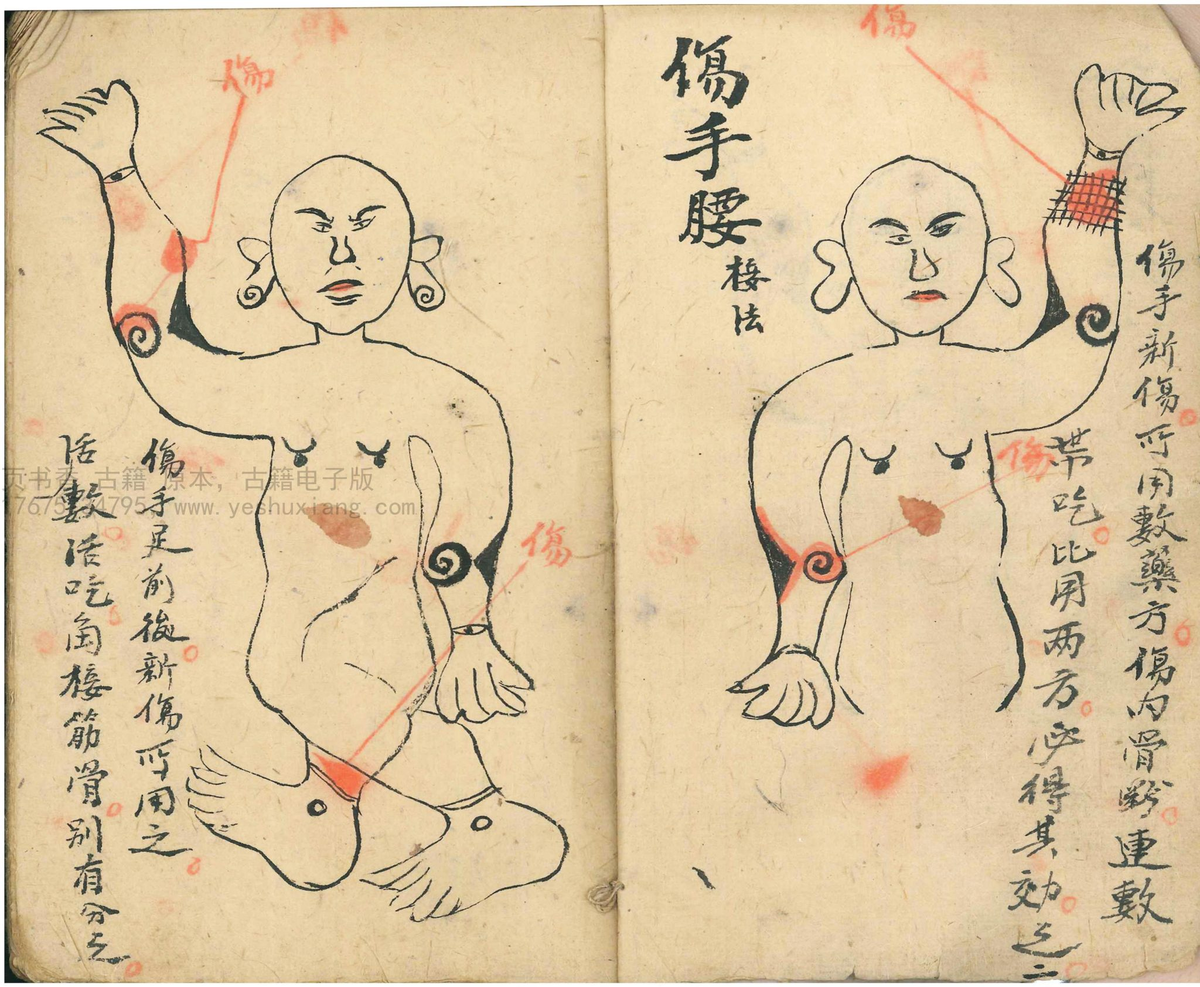 傷
傷手腰
接法
傷手新傷所用敷藥方傷內骨斷連敷
帶吃比用两方必得其効之二
傷
傷
傷
傷手足前後新傷所用之
活敷活吃肉接筋骨別有分之
古籍 原本，古籍电子版
www.yeshuxiang.com